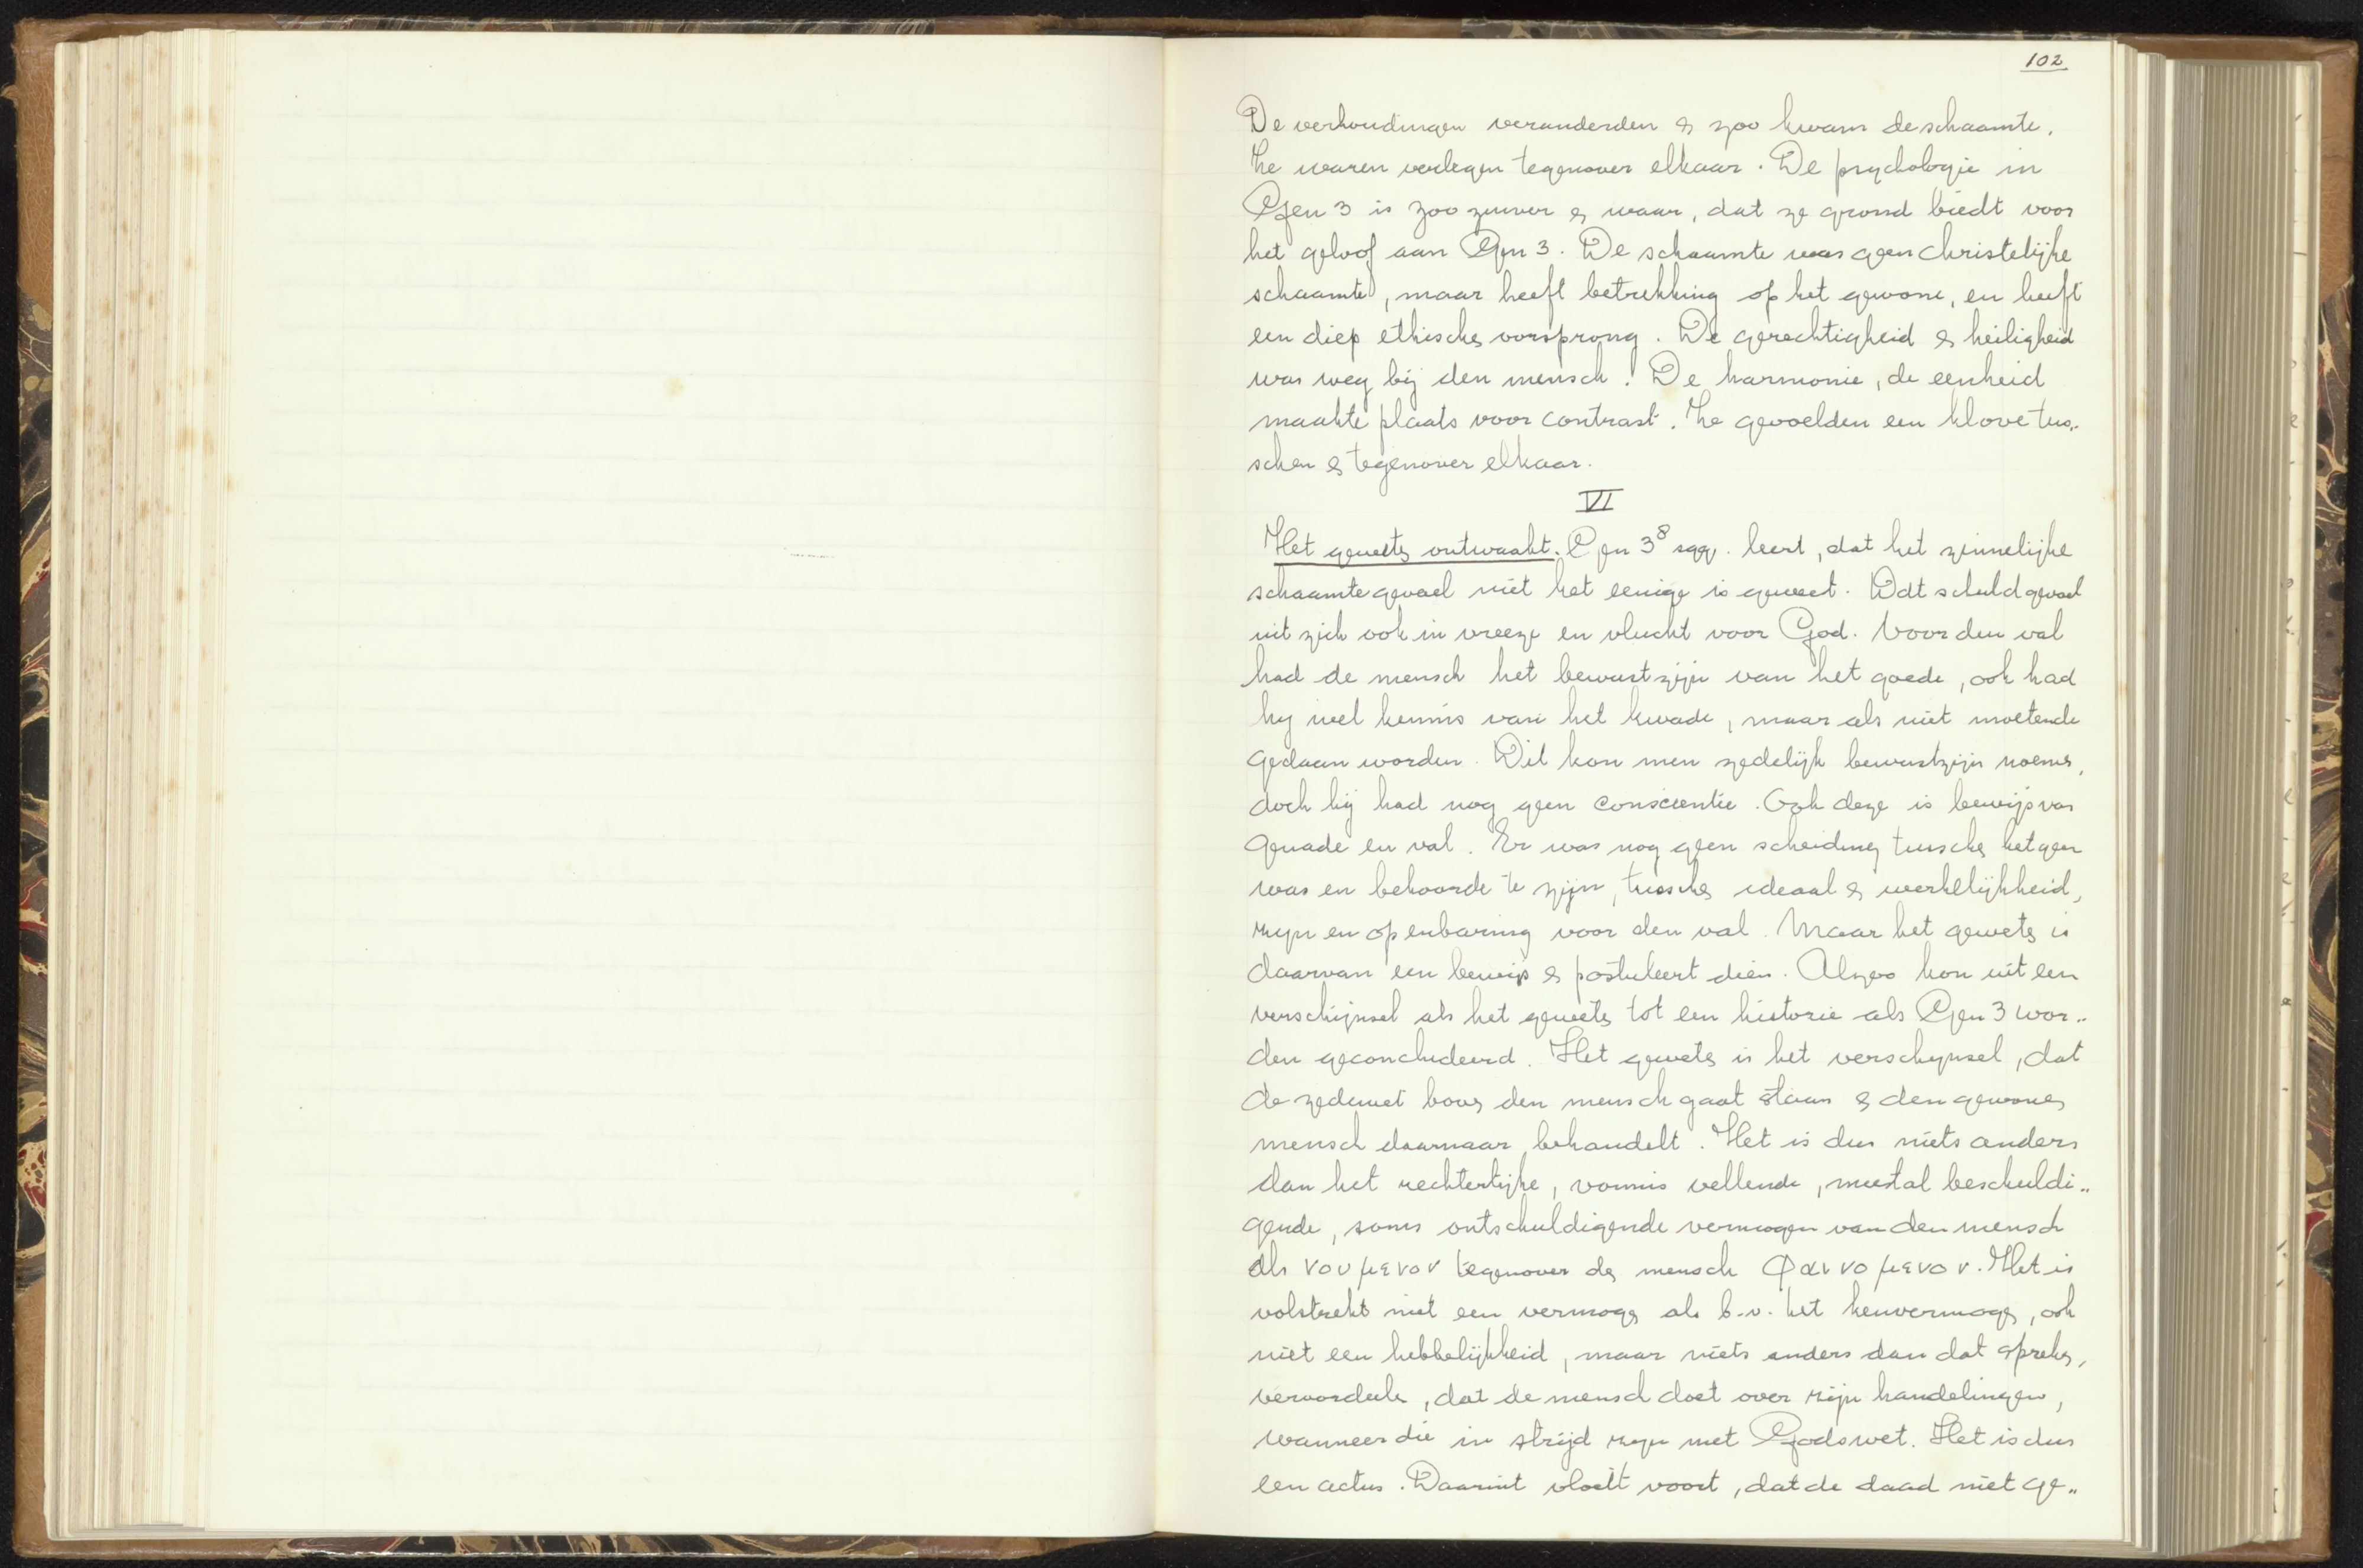 102
De verhoudingen veranderden & zoo kwam de schaamte.
Ze waren verlegen tegenover elkaar. De psychologie in
Gen 3 is zoo zuiver & waar, dat ze grond biedt voor
het geloof aan Gen 3. De schaamte was geen christelijke
schaamte, maar heeft betrekking op het gewone, en heeft
een diep ethischen oorsprong. De gerechtigheid & heiligheid
was weg bij den mensch. De harmonie, de eenheid
maakte plaats voor contrast. Ze gevoelden een klove tus„
schen & tegenover elkaar.
VI
Het geweten ontwaakt. Gen 3⁸ sqq. leert, dat het zinnelijke
schaamtegevoel niet het eenige is geweest. Dat schuldgevoel
uit zich ook in vreeze en vlucht voor God. Voor den val
had de mensch het bewustzijn van het goede, ook had
hij wel kennis van het kwade, maar als niet moetende
gedaan worden. Dit kon men zedelijk bewustzijn noemen,
doch hij had nog geen conscientie. Ook deze is bewijs van
genade en val. Er was nog geen scheiding tusschen hetgeen
was en behoorde te zijn, tusschen ideaal & werkelijkheid,
zijn en openbaring voor den val. Maar het geweten is
daarvan een bewijs & postuleert dien. Alzoo kon uit een
verschijnsel als het geweten tot een historie als Gen 3 wor„
den geconcludeerd. Het geweten is het verschijnsel, dat
de zedewet boven den mensch gaat staan & den gewonen
mensch daarnaar behandelt. Het is dus niets anders
dan het rechterlijke, vonnis vellende, meestal beschuldi„
gende, soms ontschuldigende vermogen van den mensch
als νουμενον tegenover den mensch φαινομενον. Het is
volstrekt niet een vermogen als b.v. het kenvermogen, ook
niet een hebbelijkheid, maar niets anders dan dat spreken,
veroordeelen, dat de mensch doet over zijn handelingen,
wanneer die in strijd zijn met Gods wet. Het is dus
een actus. Daaruit vloeit voort, dat de daad niet ge„